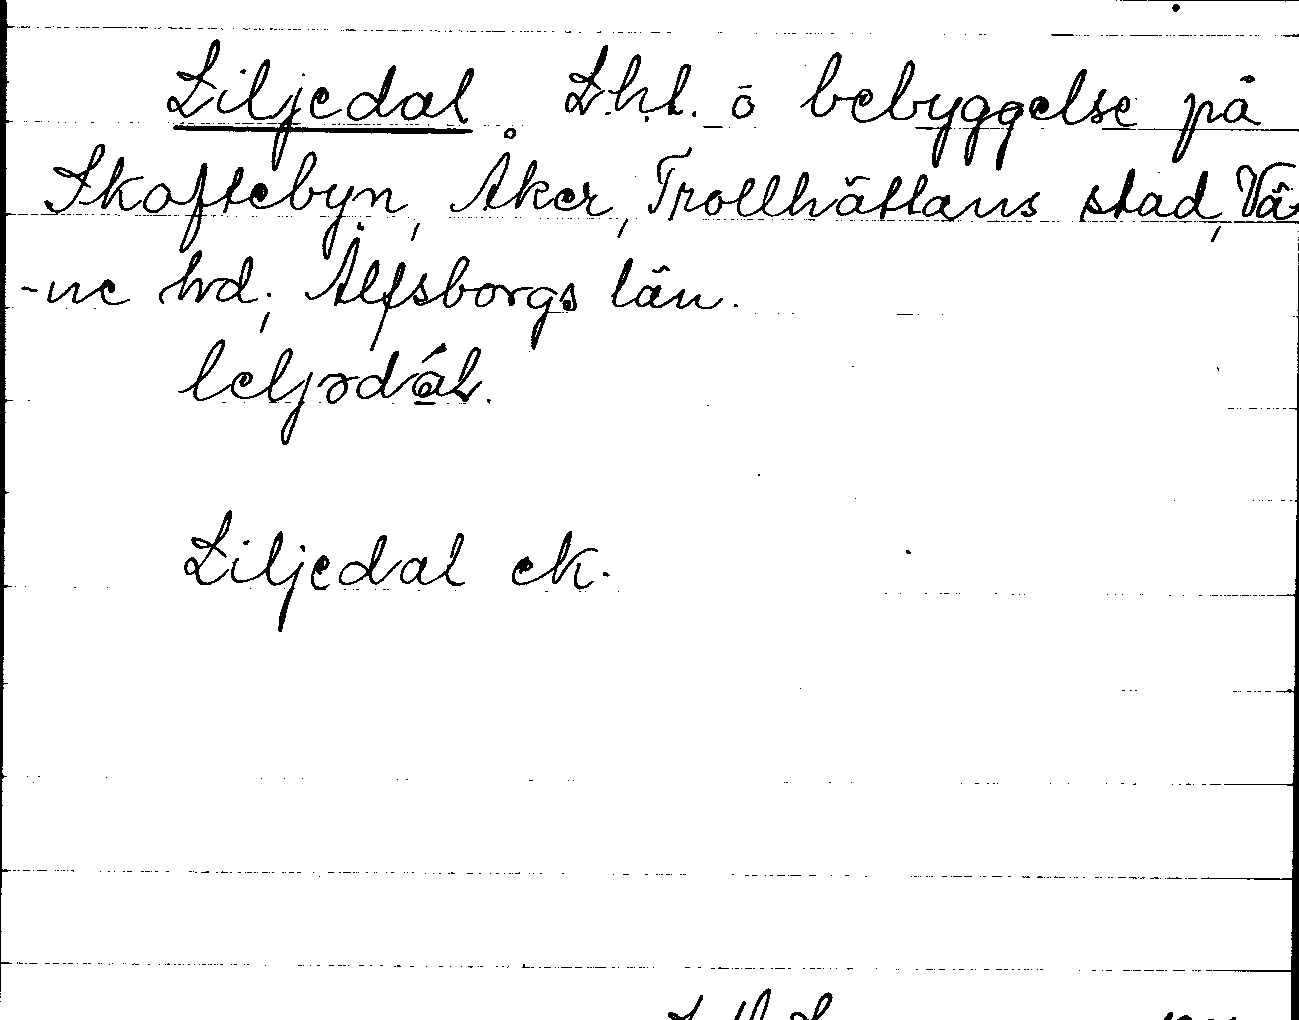 Liljedal. Lht. o bebyggelse på
Skoftebyn, Åker, Trollhättans stad, Vä-
-ne hd; Älfsborgs län.
leljədáL.
Liljedal ek.